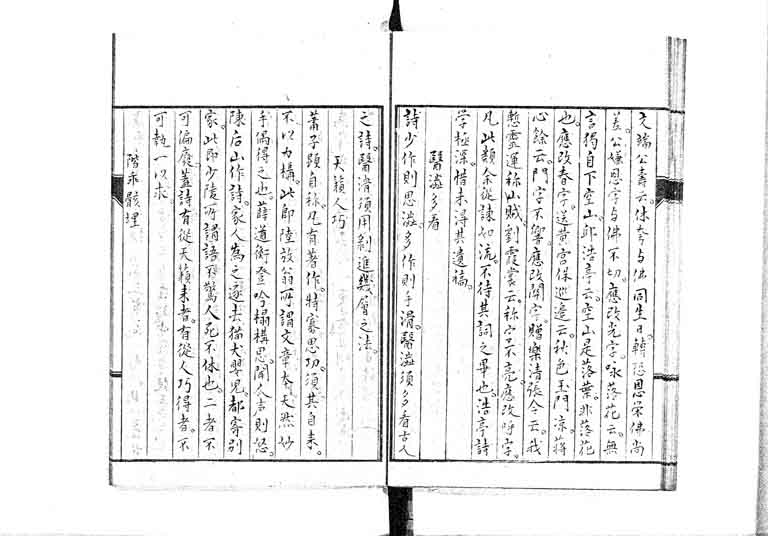 文端公壽云休夸与佛同生日轉恐恩荣佛尚
差公嫌恩字与佛不切應改光字咏落花云無
言獨自下空山邱浩亭云空山是落葉非落花
也應改春字送黄宫保巡邊云秋色玉門凉蒋
心餘云門字不響應改関字贈樂清張令云我
慙靈運称山賊劉霞裳云称字不亮應改呼字
凡此類余從諫如流不待其詞之畢也浩亭詩
学極深惜未得其遺稿
醫澁多看
詩少作則思澁多作則手滑醫澁須多看古人
之詩醫滑須用剝進幾層之法
天籟人巧
蕭子顕自称凡有著作特寡思功須其自来
不以力構此即陸放翁所謂文章本天然妙
手偶得之也薛道衡登吟榻構思聞人声則怒
陳后山作詩家人為之逐去猫犬嬰児都寄别
家此即少陵所謂語不驚人死不休也二者不
可偏廢盖詩有從天籟来者有從人巧得者不
可執一以求
階乖骸埋